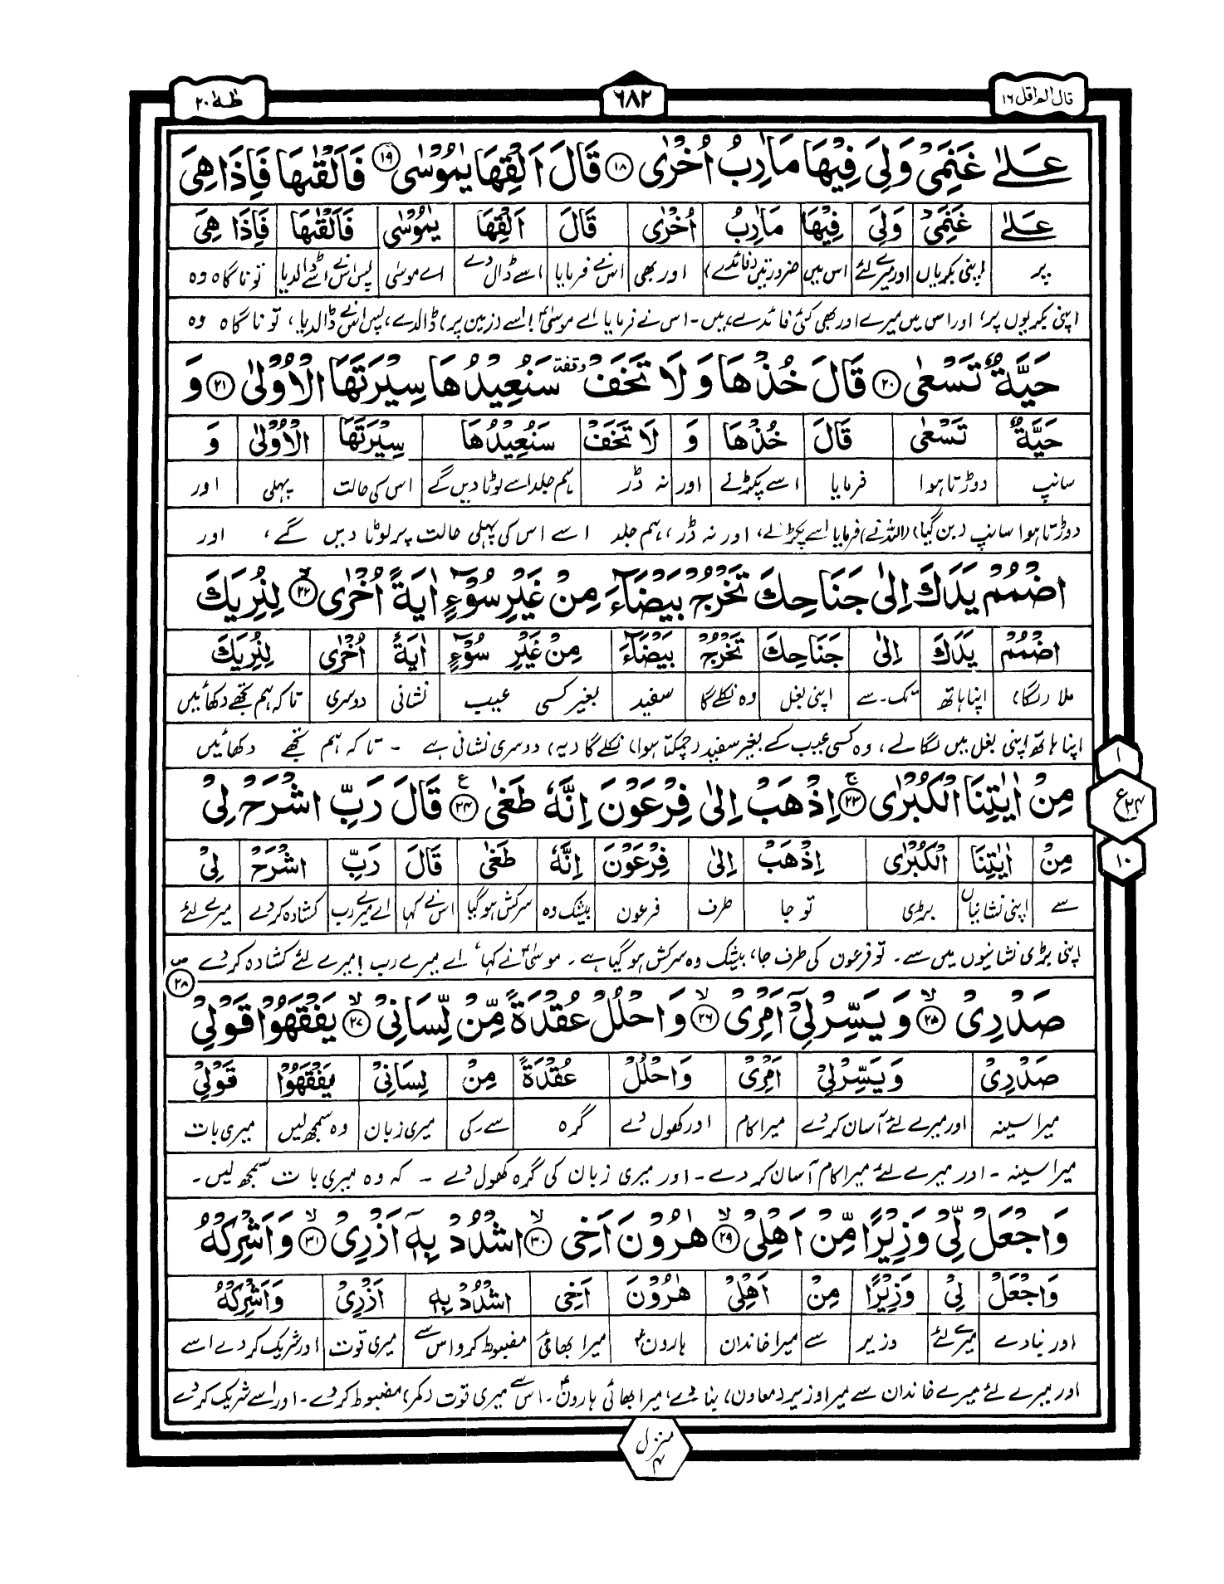 قال الم اقل ۱۶
٦٨٢
طٰهٰ ۲۰
عَلٰى غَنَمِىْ وَلِىَ فِيْهَا مَاٰرِبُ اُخْرٰى ۱۸ قَالَ اَلْقِهَا يٰمُوْسٰى ۱۹ فَاَلْقٰىهَا فَاِذَا هِىَ
عَلٰى غَنَمِىْ وَلِىَ فِيْهَا مَاٰرِبُ اُخْرٰى قَالَ اَلْقِهَا يٰمُوْسٰى فَاَلْقٰىهَا فَاِذَا هِىَ
پر (اپنی بکریاں اور میرے لئے اس میں ضرورتیں (فائدے) اور بھی اس نے فرمایا اسے ڈال دے اے موسیٰ پس اس نے اسے ڈالدیا تو ناگاہ وہ
اپنی بکریوں پر، اور اس میں میرے اور بھی کئی فائدے ہیں۔ اس نے فرمایا اے موسیٰ! اسے (زمین پر) ڈالدے، پس اس نے ڈالدیا، تو ناگاہ وہ
حَيَّةٌ تَسْعٰى ۲۰ قَالَ خُذْهَا وَ لَا تَخَفْ وقفة سَنُعِيْدُهَا سِيْرَتَهَا الْاُوْلٰى ۲۱ وَ
حَيَّةٌ تَسْعٰى قَالَ خُذْهَا وَ لَا تَخَفْ سَنُعِيْدُهَا سِيْرَتَهَا الْاُوْلٰى وَ
سانپ دوڑتا ہوا فرمایا اسے پکڑ لے اور نہ ڈر ہم جلد اسے لوٹا دیں گے اس کی حالت پہلی اور
دوڑتا ہوا سانپ (بن گیا) (اللہ نے) فرمایا اسے پکڑ لے، اور نہ ڈر، ہم جلد اسے اس کی پہلی حالت پر لوٹا دیں گے، اور
اضْمُمْ يَدَكَ اِلٰى جَنَاحِكَ تَخْرُجْ بَيْضَآءَ مِنْ غَيْرِ سُوْٓءٍ اٰيَةً اُخْرٰى ۲۲ لِنُرِيَكَ
اضْمُمْ يَدَكَ اِلٰى جَنَاحِكَ تَخْرُجْ بَيْضَآءَ مِنْ غَيْرِ سُوْٓءٍ اٰيَةً اُخْرٰى لِنُرِيَكَ
ملا (لگا) اپنا ہاتھ تک۔سے اپنی بغل وہ نکلے گا سفید بغیر کسی عیب نشانی دوسری تاکہ ہم تجھے دکھائیں
اپنا ہاتھ اپنی بغل میں لگا لے، وہ کسی عیب کے بغیر سفید (چمکتا ہوا) نکلے گا (یہ) دوسری نشانی ہے ۔ تاکہ ہم تجھے دکھائیں
مِنْ اٰيٰتِنَا الْكُبْرٰى ۲۳ اِذْهَبْ اِلٰى فِرْعَوْنَ اِنَّهٗ طَغٰى ۲۴ قَالَ رَبِّ اشْرَحْ لِىْ
۱
ع ۲۴
۱۰
مِنْ اٰيٰتِنَا الْكُبْرٰى اِذْهَبْ اِلٰى فِرْعَوْنَ اِنَّهٗ طَغٰى قَالَ رَبِّ اشْرَحْ لِىْ
سے اپنی نشانیاں بڑی تو جا طرف فرعون بیشک وہ سرکش ہو گیا اس نے کہا اے میرے رب کشادہ کر دے میرے لئے
اپنی بڑی نشانیوں میں سے۔ تو فرعون کی طرف جا، بیشک وہ سرکش ہو گیا ہے۔ موسیٰ نے کہا اے میرے رب! میرے لئے کشادہ کر دے
۲۸
صَدْرِىْ ۲۵ وَ يَسِّرْ لِىْٓ اَمْرِىْ ۲۶ وَ احْلُلْ عُقْدَةً مِّنْ لِّسَانِىْ ۲۷ يَفْقَهُوْا قَوْلِىْ
صَدْرِىْ وَ يَسِّرْ لِىْ اَمْرِىْ وَ احْلُلْ عُقْدَةً مِنْ لِسَانِىْ يَفْقَهُوْا قَوْلِىْ
میرا سینہ اور میرے لئے آسان کر دے میرا کام اور کھول دے گرہ سے۔کی میری زبان وہ سمجھ لیں میری بات
میرا سینہ ۔ اور میرے لئے میرا کام آسان کر دے ۔ اور میری زبان کی گرہ کھول دے ۔ کہ وہ میری بات سمجھ لیں۔
وَ اجْعَلْ لِّىْ وَزِيْرًا مِّنْ اَهْلِىْ ۲۹ هٰرُوْنَ اَخِى ۳۰ اشْدُدْ بِهٖٓ اَزْرِىْ ۳۱ وَ اَشْرِكْهُ
وَ اجْعَلْ لِىْ وَزِيْرًا مِنْ اَهْلِىْ هٰرُوْنَ اَخِى اشْدُدْ بِهٖ اَزْرِىْ وَ اَشْرِكْهُ
اور بنا دے میرے لئے وزیر سے میرا خاندان ہارون میرا بھائی مضبوط کر دے اس سے میری قوت اور شریک کر دے اسے
اور میرے لئے میرے خاندان سے میرا وزیر (معاون) بنا دے، میرا بھائی ہارون۔ اس سے میری قوت (کمر) مضبوط کر دے۔ اور اسے شریک کر دے
منزل ۴